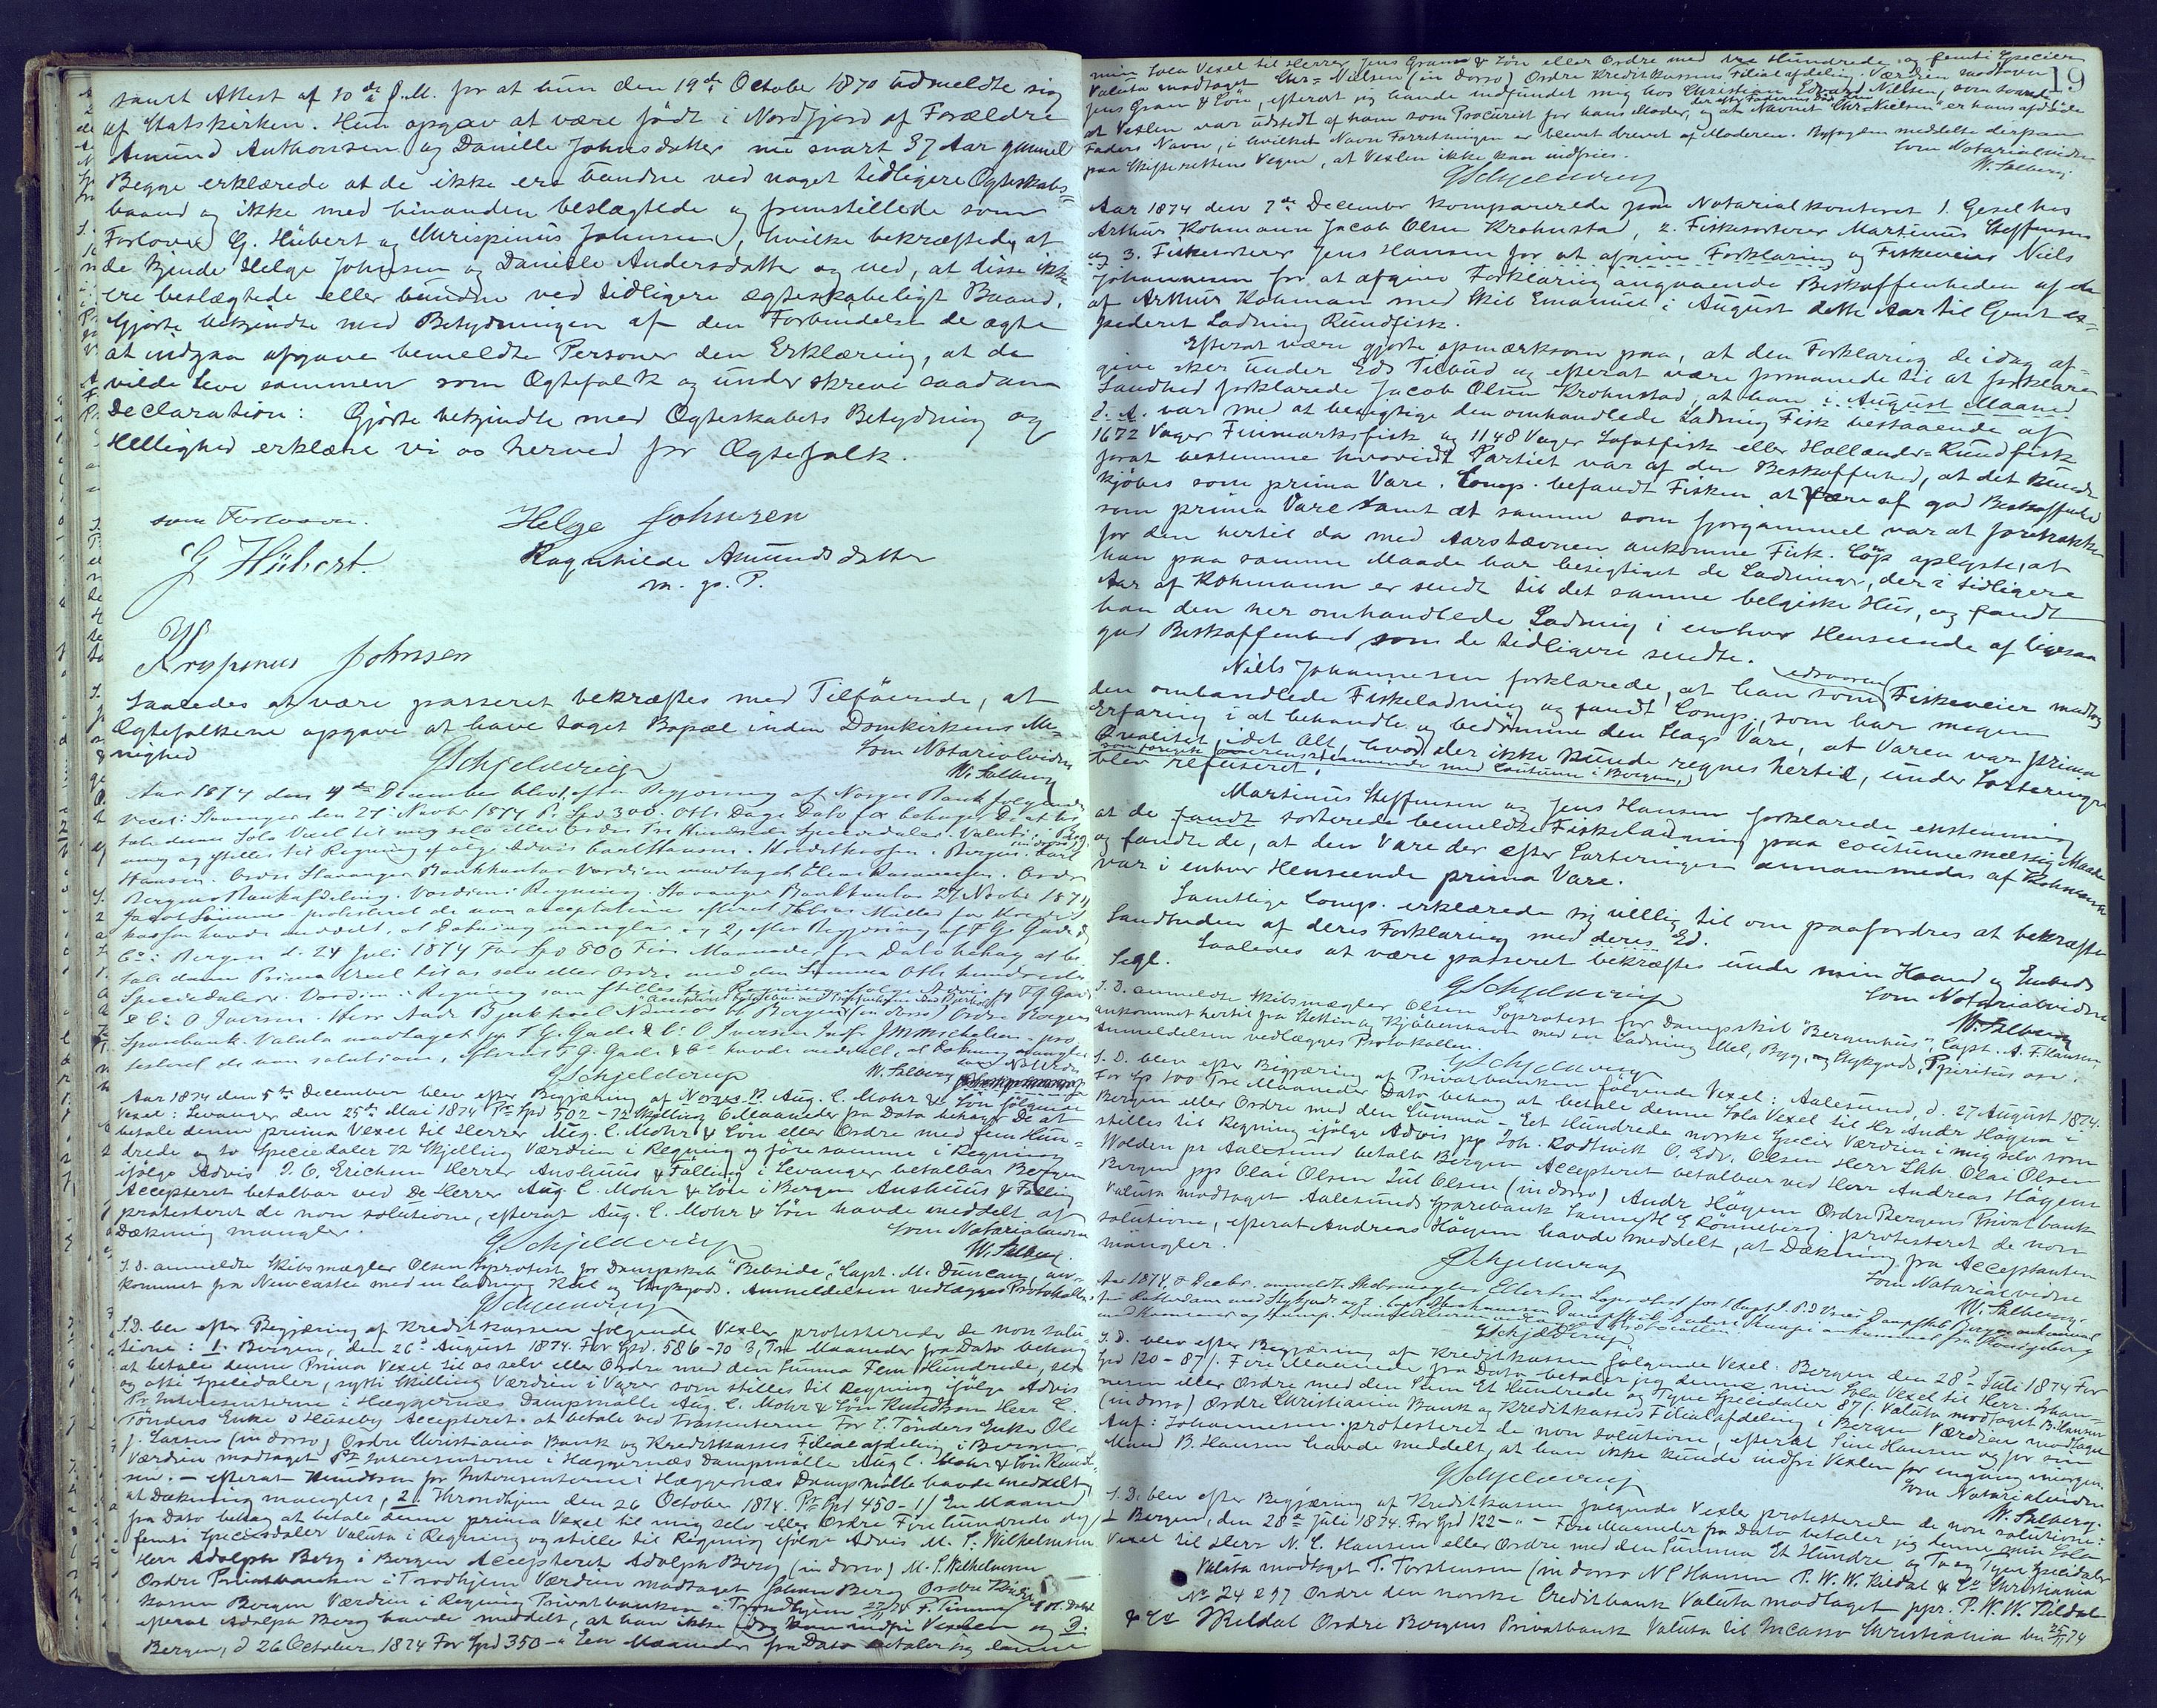 samt Attest af 10de d.M. for at hun den 19de October 1870 udmeldte sig
af Statskirken. Hun opgav at være født i Nordfjord af Forældre
Amund Anthonsen og Danielle Johnsdatter nu snart 37 Aar gammel
Begge erklærede at de ikke ere bundne ved noget tidligere Ægteskabs=
baand og ikke med hinanden beslægtede og fremstillede som
Forlovere G. Hübert og Chrispinus Johnsen, hvilke bekræftede, at
de kjende Helge Johnsen og Danielle Andersdatter og ved, at disse ikke
ere beslægtede eller bundne ved tidligere ægteskabeligt Baand.
Gjorte bekjendte med Betydningen af den Forbindelse de agte
at indgaa afgave bemeldte Personer den Erklæring, at de
vilde leve sammen som Ægtefolk og underskreve saadan
Declaration: Gjorte bekjendte med Ægteskabets Betydning og
Hellighed erklære vi os herved for Ægtefolk.
som Forlovere.
Helge Johnsen
G Hübert.
Ragnhilde Amundsdatter
m. p. P.
Krispinus Johnsen
Saaledes at være passeret bekræftes med Tilføiende, at
Ægtefolkene opgave at have taget Bopæl inden Domkirkens Me=
nighed
Som Notarialvidne
GSchjelderup
W. Salberg
Aar 1874 den 4de December blev efter Begjæring af Norges Bank følgende
Vexel: Stavanger den 27 Novbr 1874 Pr Spd 300. Otte Dage Dato behager De at be
tale denne Sola Vexel til mig selv eller Ordre Tre Hundrede Speciedaler. Valuta i
og stilles til Regning ifølge Advis Carl Hansen. Bergen. Carl
Hansen. Ordre Stavanger Bankkontor Værdien modtaget Ordre
Bergens Bankafdeling. Værdien i Regning. Stavanger Bankkontor 27 Novbr 1874
protesteret de non acceptatione efterat Müller for
kassen havde meddelt, at Dækning mangler og 2, efter Begjæring af F G Gade &
Co: Bergen d. 24 Juli 1874 For Spd 800 Fire Maaneder fra Dato behag at be
tale denne Prima Vexel til os selv eller Ordre med den Summa Otte hundrede
Speciedaler. Værdien i Regning som stilles til Regning ifølge Advis pp F G Gade
& Co O Iversen. Herr Andr Bjerkhoel Bergen (in dorso) Ordre Bergens
Sparebank. Valuta modtaget pp F. G. Gade & Co O Iversen J Michelsen. pro
testeret de non solutione, efterat F. G. Gade & Co havde meddelt, at Dækning mangler
GSchjelderup
W. Salberg
Aar 1874 den 5te December blev efter Begjæring af Aug. C. Mohr & Søn følgende
Vexel: Levanger den 25de Mai 1874 Pr Spd 502 - 72 Skilling 6 Maaneder fra Dato behager De at
betale denne prima Vexel til Herrer Aug. C. Mohr & Søn eller Ordre med fem Hun=
drede og to Speciedaler 72 Skjelling Værdien i Regning og føre samme i Regning
ifølge Advis P. O. Erichsen Herrer Aushuus & Falling i Levanger betalbar Bergen
Accepteret betalbar ved De Herrer Aug. C. Mohr & Søn i Bergen Aushuus & Falling
protesteret de non solutione, efterat Aug. C. Mohr & Søn havde meddelt at
Dækning mangler.
Som Notarialvidne
GSchjelderup
W. Salberg.
S. D. anmeldte Skibsmægler Olsen Søprotest for Dampskib "Bebside," Capt. M. Duncan, an=
kommet fra Newcastle med en Ladning Kul og Stykgods. Anmeldelsen vedlægges Protokollen.
GSchjelderup
S. D. blev efter Begjæring af Kreditkassen følgende Vexler protesterede de non solu
tione: 1. Bergen, den 26d August 1874. For Spd. 586 - 70 ß, Tre Maaneder fra Dato behag
at betale denne Prima Vexel til os selv eller Ordre med den Summa Fem Hundrede, sex
og otti Speciedaler, sytti Skilling Værdien i Varer som stilles til Regning ifølge Advis
Pr Interessenterne i Hæggernæs Dampmølle Aug. C. Mohr & Søn Knudtson Herr C.
Tønders Enke o Huseby Accepteret at betale ved Trassenterne For C. Tønders Enke Ole
J. Larsen (in dorso) Ordre Christiania Bank og Kreditkasses Filialafdeling i Bergen
Værdien modtaget Pr Interessenterne i Hæggernæs Dampmølle Aug C. Mohr & Søn Knudt
sen. - efterat Knudtson for Interessenterne i Hæggernæs Dampmølle havde meddelt,
at Dækning mangler, 2. Throndhjem den 26 October 1874. Pr Spd 450 - 1/ En Maaned
fra Dato behag at betale denne prima Vexel til mig selv eller Ordre Fire hundrede og
femti Speciesdaler Valuta i Regning og stille til Regning ifølge Advis M. S. Wilhelmsen
Herr Adolph Berg i Bergen Accepteret Adolph Berg (in dorso) M. S. Wilhelmsen
Ordre Privatbanken i Trondhjem Værdien modtaget Johan Berg Ordre
kassen Bergen Værdien i Regning Privatbanken i Trondhjem 27/11 74
efterat Adolph Berg havde meddelt, at han ikke idag kan indfri Vexlen og 3.
Bergen, d 26 October 1874 For Spd 350 - " En Maaneder fra Dato betaler jeg denne
19
min Sola Vexel til Herrer Jens Gram & Søn eller Ordre med tre Hundrede og femti Specier
Valuta modtaget Chr= Nielsen (in dorso) Ordre Kreditkassens Filialafdeling. Værdien modtaget
Jens Gram & Søn, efterat jeg havde indfundet mig hos Christian Edvard Nielsen, som svarede
at Vexlen var udstedt af ham som Procurist for hans Moder, og at Navnet "Chr. Nielsen" er hans afdøde
Faders Navn, i hvilket Navn Forretningen er blevet drevet af Moderen. Byfogden meddelte derpaa
paa Skifterettens Vegne, at Vexlen ikke kan indfries.
Som Notarialvidne
W. Salberg.
GSchjelderup
Aar 1874 den 7de December komparerede paa Notarialkontoret 1. Gesel hos
Arthur Kohmann Jacob Olsen Krohnstad, 2. Fiskesorterer Martinus Steffensen
og 3. Fiskesorterer Jens Hansen for at afgive Forklaring og Fiskeveier Niels
Johannesen for at afgive Forklaring angaaende Beskaffenheden af en
af Arthur Kohman med Skib Emanuel i August dette Aar til Gent ex=
pederet Ladning Rundfisk.
Efterat være gjorte opmærksom paa, at den Forklaring de idag af=
give sker under Eds Tilbud og efterat være formanede til at forklare
Sandhed forklarede Jacob Olsen Krohnstad, at han i August Maaned
d. A. var med at besigtige den omhandlede Ladning Fisk bestaaende af
1672 Voger Finmarksfisk og 1148 Voger Lofotfisk eller Hollænder=Rundfisk
forat bestemme hvorvidt Partiet var af den Beskaffenhed, at det kunde
kjøbes som prima Vare. Comp. befandt Fisken at være af god Beskaffenhed
som prima Vare samt at samme som fjorgammel var at foretrække
for den hertil da med Aarstævnen ankomne Fisk. Cop oplyste, at
han paa samme Maade har besigtiget de Ladninger, der i tidligere
Aar af Kohmann er sendt til det samme belgiske Hus, og fandt
han den her omhandlede Ladning i enhver Henseende af ligesaa
god Beskaffenhed som de tidligere sendte.
Niels Johannesen forklarede, at han som edsvoren Fiskeveier modtog
den omhandlede Fiskeladning og fandt Comp., som har megen
Erfaring i at behandle og bedømme den Slags Vare, at Varen var prima
Qvalitet, idet Alt, hvad der ikke kunde regnes hertil, under Sorteringen
som foregik overensstemmende med Coutumen i Bergen,
blev refuseret.
Martinus Steffensen og Jens Hansen forklarede enstemmig
at de fandt sorterede bemeldte Fiskeladning paa coutumemæssig Maade
og fandt de, at den Vare der efter Sorteringen annammedes af Kohmann
var i enhver Henseende prima Vare.
Samtlige Comp. erklærede sig villig til om paafordres at bekræfte
Sandheden af deres Forklaring med deres Ed.
Saaledes at være passeret bekræftes under min Haand og Embeds
Segl.
GSchjelderup
Som Notarialvidne
W. Salberg
S. D. anmeldte Skibsmægler Olsen Søprotest for Dampskib "Bergenhus", Capt. A. F. Hansen,
ankommet hertil fra Stettin og Kjøbenhavn med en Ladning Mel, Byg, og Stykgods, Spiritus osv.
Anmeldelsen vedlægges Protokollen.
GSchjelderup
S. D. blev efter Begjæring af Privatbanken følgende Vexel: Aalesund, d. 27 August 1874.
For Sp 100 Tre Maaneder Dato behag at betale denne Sola Vexel til Hr Andr Høgem i
Bergen eller Ordre med den Summa - Et Hundrede norske Specier Værdien i mig selv som
stilles til Regning ifølge Advis pp Joh. Rodtwitt O. Edv. Olsen Herr Olai Olsen
Wolden pr Aalesund betalb Bergen Accepteret betalbar ved Herr Andreas Høgem
Bergen pp Olai Olsen Jul Olsen (in dorso) Andr Høgem Ordre Bergens Privatbank
Valuta modtaget Aalesunds Sparebank E Rønneberg. protesteret de non
solutione, efterat Andreas Høgem havde meddelt, at Dækning fra Acceptanten
mangler.
Som Notarialvidne
GSchjelderup
W. Salberg.
GSchjelderup
S. D. blev efter Begjæring af Kreditkassen følgende Vexel: Bergen den 28d Juli 1874 For
Spd 120 - 87/. Fire Maaneder fra Dato betaler jeg denne min Sola Vexel til Herr. Johan=
nesen eller Ordre med den Sum Et Hundrede og Tyve Speciedaler 87/. Valuta modtaget B. Hansen
(in dorso) Ordre Christiania Bank og Kreditkasses Filialafdeling i Bergen Værdien modtaget
Johannesen. protesteret de non solutione, efterat Sine Hansen og for sin
Mand B. Hansen havde meddelt, at han ikke kunde indfri Vexlen før engang imorgen.
Som Notarialvidne
GSchjelderup
W. Salberg.
S. D. blev efter Begjæring af Kreditkassen følgende Vexler protesterede de non solutione:
1 Bergen, den 28de Juli 1874. For Spd 122 - " - Fire Maaneder fra Dato betaler jeg denne min Sola
Vexel til Herr N. C. Hansen eller Ordre med den Summa Et Hundre og To og Tyve Speciedaler
Valuta modtaget T. Torstensen (in dorso N C Hansen P. W. W. Kildal & Co Christiania
No 24297 Ordre den norske Creditbank Valuta modtaget ppr. P. W. W. Kildal
& Co Kildal Ordre Bergens Privatbank Valuta til Incasso Christiania den 25/11 74